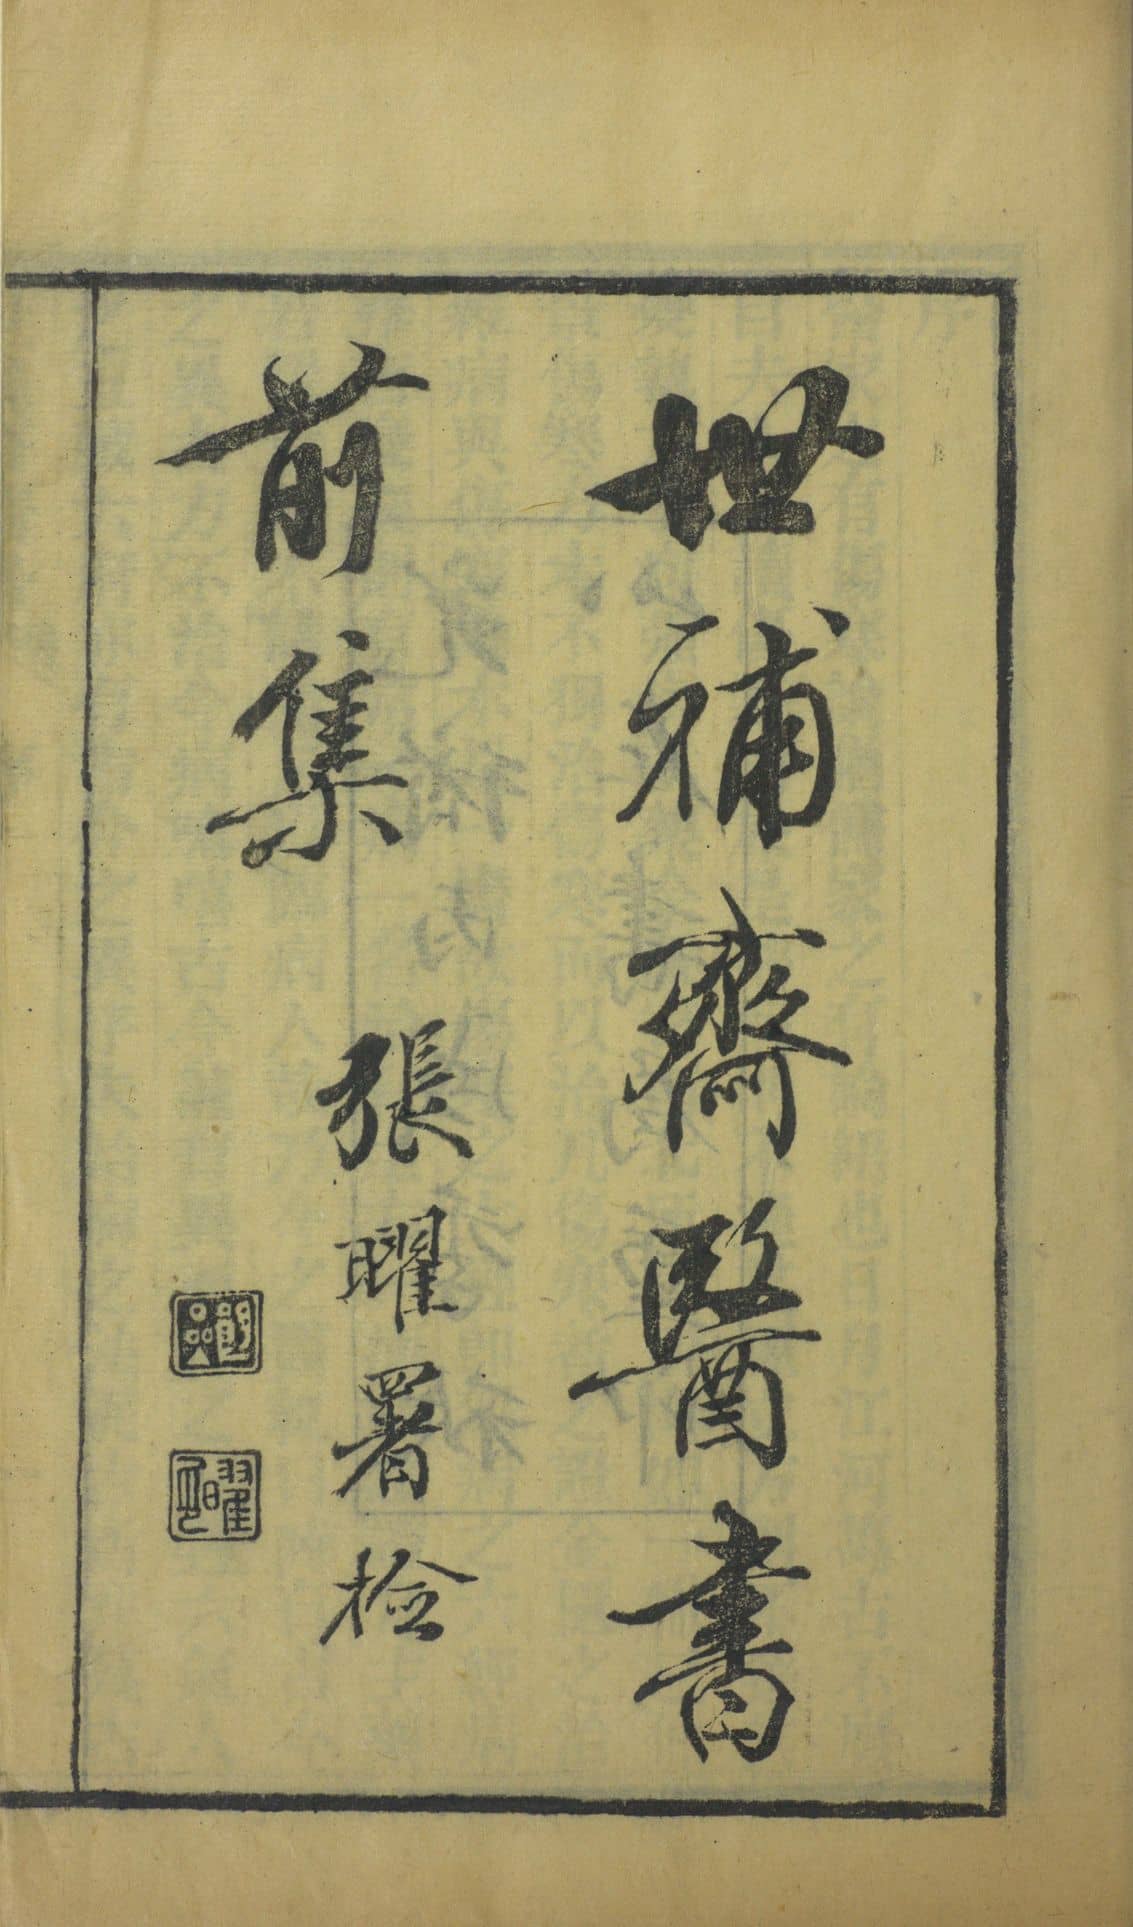 世補齋醫書
前集
張曜署檢
曜印